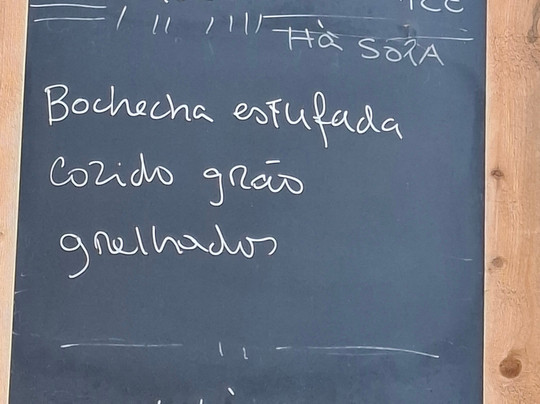 Hà SOPA
Bochecha estufada
Cozido grão
grelhados